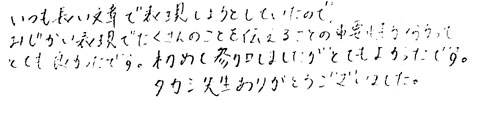 いつも長い文章で表現しようとしていたので、
みじかい表現でたくさんのことを伝えることの重要性が分かって
とても良かったです。初めて参加しましたがとてもよかったです。
タカシ先生ありがとうございました。